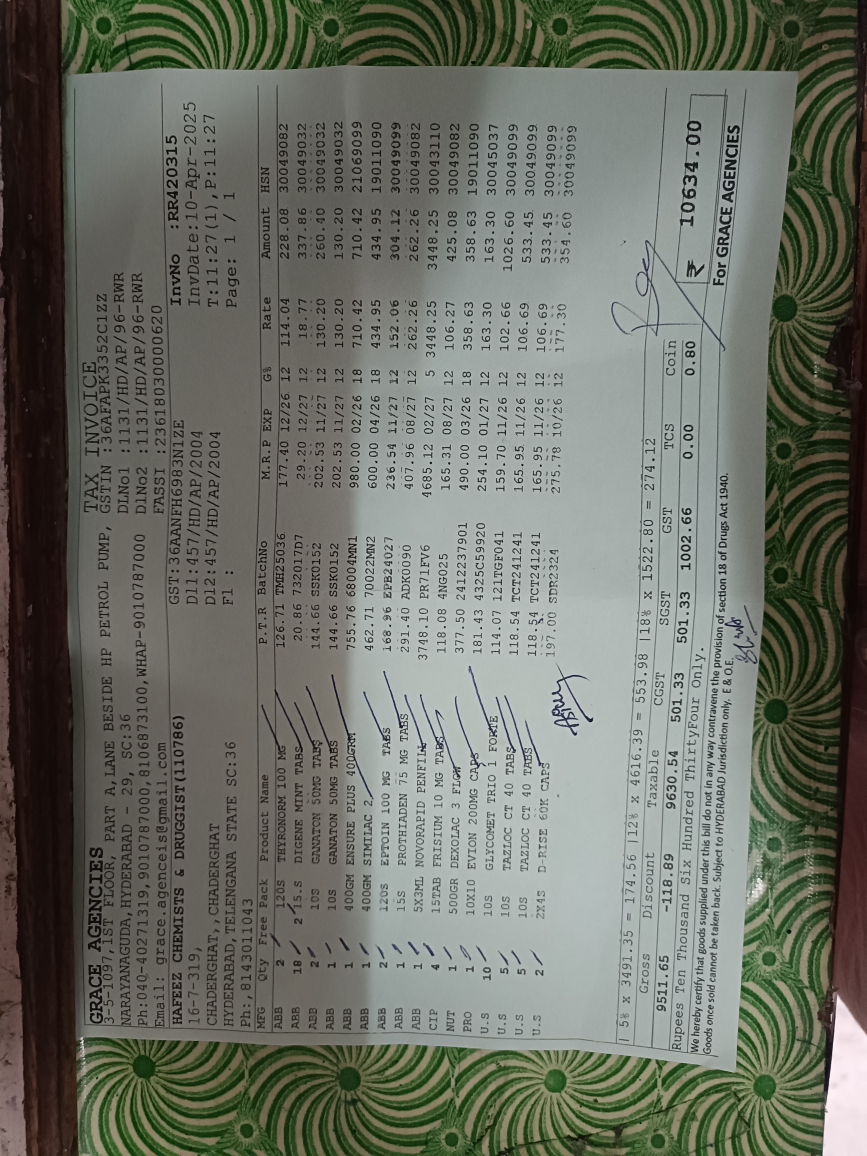 TAX INVOICE
GRACE AGENCIES
3-5-1097,1ST FLOOR, PART A,LANE BESIDE HP PETROL PUMP, GSTIN :36AFAPK3352C1ZZ
NARAYANAGUDA,HYDERABAD - 29, SC:36 DLNo1 :1131/HD/AP/96-RWR
Ph:040-40271319,9010787000,8106873100,WHAP-9010787000 DlNo2 :1131/HD/AP/96-RWR
Email: grace.agenceis@gmail.com FASSI :23618030000620
HAFEEZ CHEMISTS & DRUGGIST(110786) GST:36AANFH6983N1ZE InvNo :RR420315
16-7-319, Dl1:457/HD/AP/2004 InvDate:10-Apr-2025
CHADERGHAT,,CHADERGHAT Dl2:457/HD/AP/2004 T:11:27(1),P:11:27
HYDERABAD,TELENGANA STATE SC:36 Fl : Page: 1 / 1
Ph:,8143011043
MFG Qty Free Pack Product Name P.T.R BatchNo M.R.P EXP G% Rate Amount HSN
ABB 2 120S THYRONORM 100 MG 126.71 TMH25036 177.40 12/26 12 114.04 228.08 30049082
ABB 18 2 15.S DIGENE MINT TABS 20.86 732017D7 29.20 12/27 12 18.77 337.86 30049032
ABB 2 10S GANATON 50MG TABS 144.66 SSK0152 202.53 11/27 12 130.20 260.40 30049032
ABB 1 10S GANATON 50MG TABS 144.66 SSK0152 202.53 11/27 12 130.20 130.20 30049032
ABB 1 400GM ENSURE PLUS 400GRM 755.76 68004MN1 980.00 02/26 18 710.42 710.42 21069099
ABB 1 400GM SIMILAC 2 462.71 70022MN2 600.00 04/26 18 434.95 434.95 19011090
ABB 2 120S EPTOIN 100 MG TABS 168.96 EPB24027 236.54 11/27 12 152.06 304.12 30049099
ABB 1 15S PROTHIADEN 75 MG TABS 291.40 ADK0090 407.96 08/27 12 262.26 262.26 30049082
ABB 1 5X3ML NOVORAPID PENFILL 3748.10 PR71FV6 4685.12 02/27 5 3448.25 3448.25 30043110
CIP 4 15TAB FRISIUM 10 MG TABS 118.08 4NG025 165.31 08/27 12 106.27 425.08 30049082
NUT 1 500GR DEXOLAC 3 FLOW 377.50 2412237901 490.00 03/26 18 358.63 358.63 19011090
PRO 1 10X10 EVION 200MG CAPS 181.43 4325C59920 254.10 01/27 12 163.30 163.30 30045037
U.S 10 10S GLYCOMET TRIO 1 FORTE 114.07 121TGF041 159.70 11/26 12 102.66 1026.60 30049099
U.S 5 10S TAZLOC CT 40 TABS 118.54 TCT241241 165.95 11/26 12 106.69 533.45 30049099
U.S 5 10S TAZLOC CT 40 TABS 118.54 TCT241241 165.95 11/26 12 106.69 533.45 30049099
U.S 2 2X4S D-RISE 60K CAPS 197.00 SDR2324 275.78 10/26 12 177.30 354.60 30049099
| 5% x 3491.35 = 174.56 |12% x 4616.39 = 553.98 |18% x 1522.80 = 274.12
Gross Discount Taxable CGST SGST GST TCS Coin
9511.65 -118.89 9630.54 501.33 501.33 1002.66 0.00 0.80 ₹ 10634.00
Rupees Ten Thousand Six Hundred ThirtyFour Only.
We hereby certify that goods supplied under this bill do not in any way contravene the provision of section 18 of Drugs Act 1940.
Goods once sold cannot be taken back. Subject to HYDERABAD Jurisdiction only. E & O.E.
For GRACE AGENCIES